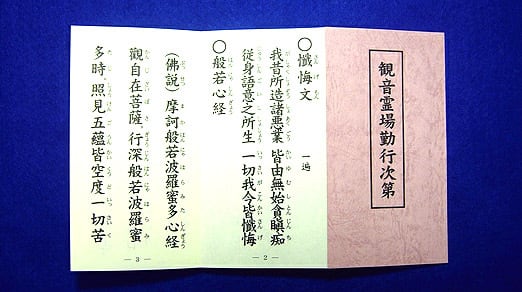 観音霊場勤行次第
○懺悔文
一遍
我昔所造諸悪業 皆由無始貪瞋痴
従身語意之所生 一切我今皆懺悔
— 2 —
○般若心経
(佛説)摩訶般若波羅蜜多心経
觀自在菩薩。行深般若波羅蜜
多時。照見五蘊皆空度一切苦
— 3 —